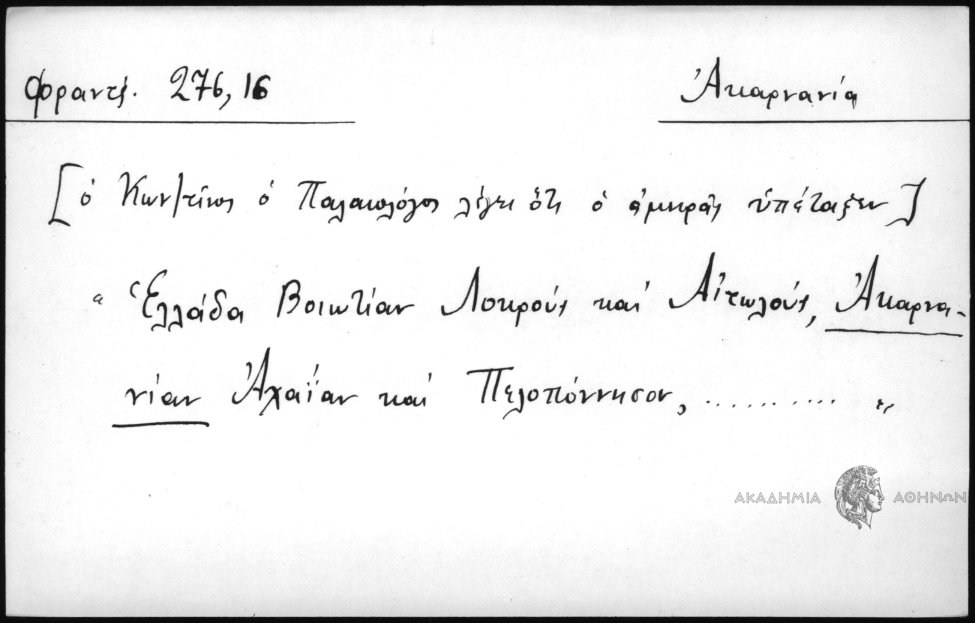 Φραντζ. 276, 16
Ἀκαρνανία
[ὁ Κων/τῖνος ὁ Παλαιολόγος λέγει ὅτι ὁ ἀμηρᾶς ὑπέταξεν]
“ Ἑλλάδα Βοιωτίαν Λοκροὺς καὶ Αἰτωλούς, Ἀκαρνα-
νίαν Ἀχαΐαν καὶ Πελοπόννησον, .......... „
ΑΚΑΔΗΜΙΑ ΑΘΗΝΩΝ